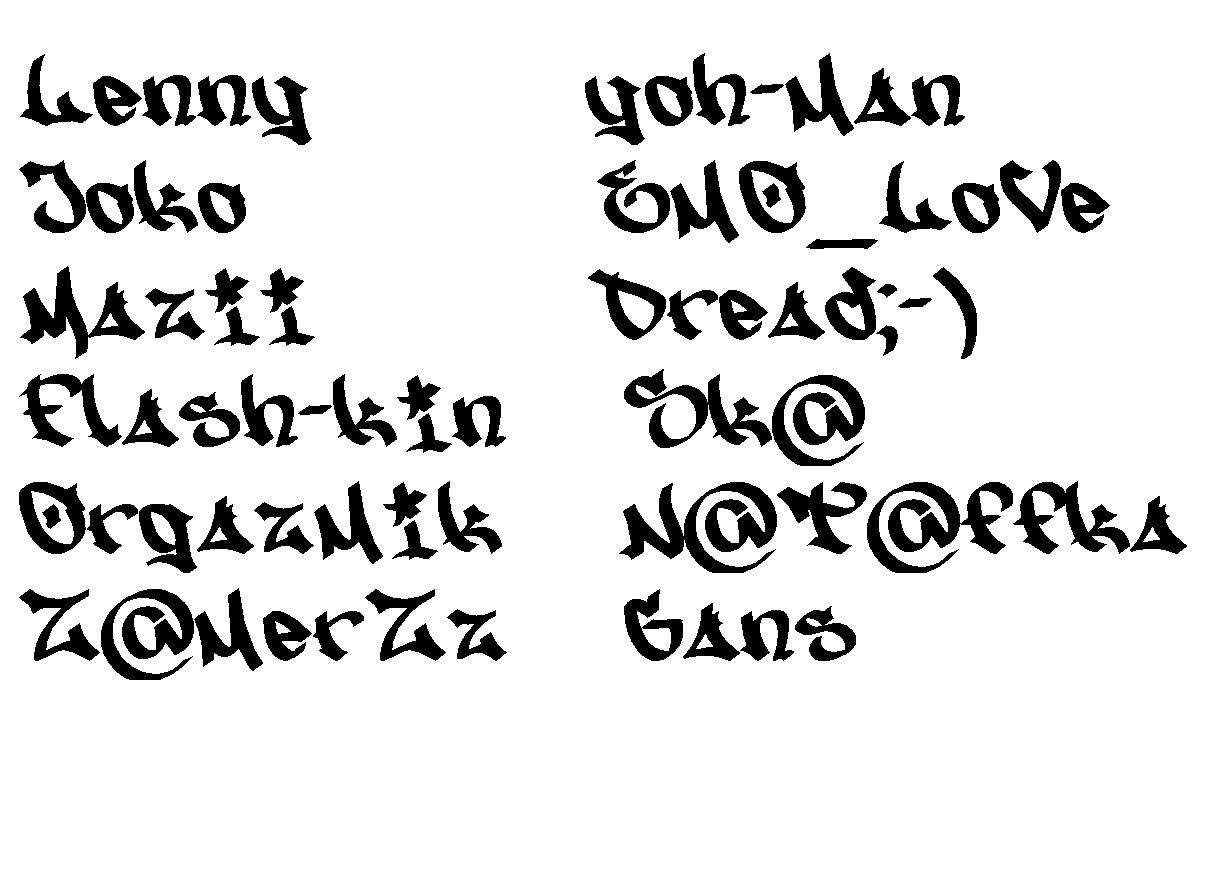 Lenny
Joko
Mazii
Flash-kin
OrgazMik
Z@MerZz
yoh-Man
EMO_LoVe
Dread;-)
Sk@
N@T@ffka
Gans